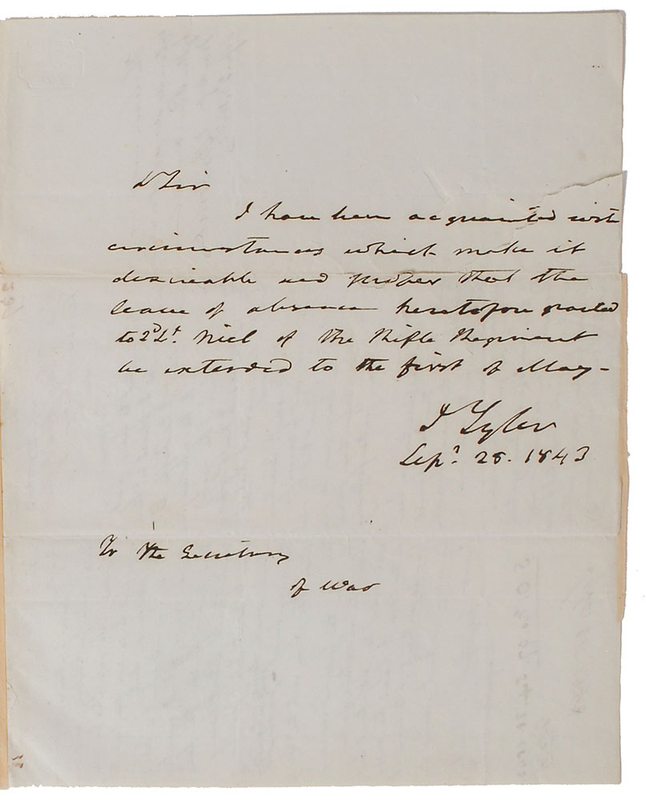 D Sir
I have been acquainted with
circumstances which make it
desireable and proper that the
leave of absence heretofore granted
to 2d Lt. Niel of the Rifle Regiment
be extended to the first of May-
J Tyler
Sepr. 28. 1843
To the Secretary
of War